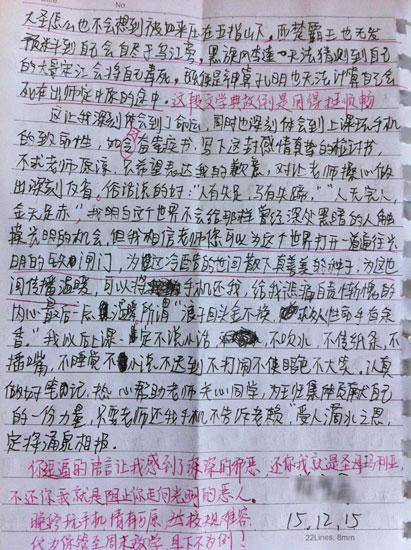 No.
大圣怎么也不会想到被如来压在五指山下,西楚霸王也无法
预料到自己会自尽于乌江旁,黑旋风李逵也无法猜测到自己
的大哥宋江会将自己毒死,即便是神算孔明也无法计算自己会
死在出师定中原的途中。这段文学典故倒是用得挺顺畅
这让我深刻体会到了命运,同时也深刻体会到上课玩手机
的致命性,如
的检讨书
不求老师原谅,只希望表达我的歉意,对让老师操心做
出深刻反省,俗话说的好:"人有失足,马有失蹄,""人无完人,
金无足赤,"我明白这个世界不会给那样曾经深处黑暗的人触
摸光明的机会,但我相信老师您可以为这个世界打开一道通往光
明的 闸门,为这冷酷的世间散下真善美的种子,为这世
间传播温暖,可以将手机还我,给我悲痛自责忏悔的
内心最后一层温暖,所谓"浪子回头金不换
"我以后上课一定不说小话 不吹水,不传纸条,不
插嘴,不睡觉 不迟到不打闹不使眼色不大笑,认真
做好笔记,热心帮助老师关心同学,为王归集体贡献自己
的一份力量,只要老师还我手机不告诉老赖,"受人滴水之恩,
定将涌泉相报。
你逗逼的语言让我感到了深深的邪恶,还你我就是圣母玛利亚,
不还你我就是阻止你走向光明的恶人。
晚修玩手机情有可原 校规难容
代为保管至周末放学 且下不为例!
15.12.15
22Lines. 8mm